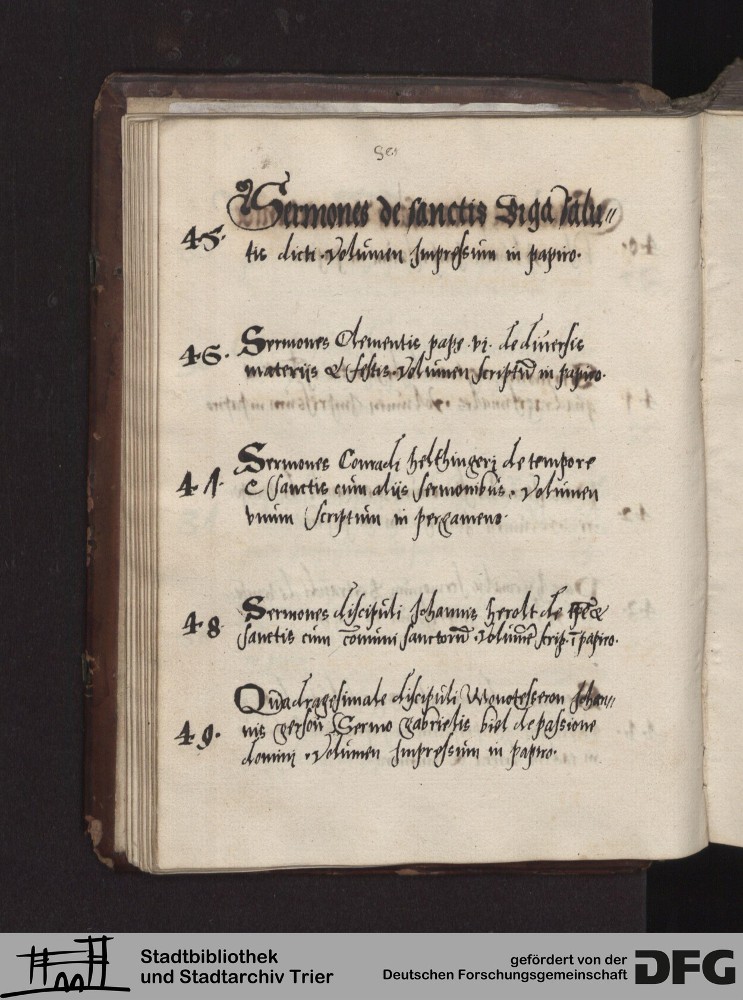 45. Sermones de sanctis Biga salu„
tis dicti. Volumen Impressum in papiro.
46. Sermones Clementis pape vi. de diuersis
materijs & festis. Volumen scriptū in papiro.
47. Sermones Conradi helthingerj de tempore
& sanctis cum alijs sermonibus. Volumen
vnum scriptum in pergameno.
48. Sermones discipuli Johannis herolt de tpe &
sanctis cum cōmuni sanctorū. Volumē scrip. ī papiro.
49. Quadragesimale discipuli Monotesseron Johan„
nis gerson Sermo gabrielis biel de passione
dominj. Volumen Impressum in papiro.
Stadtbibliothek
und Stadtarchiv Trier
gefördert von der
Deutschen Forschungsgemeinschaft
DFG